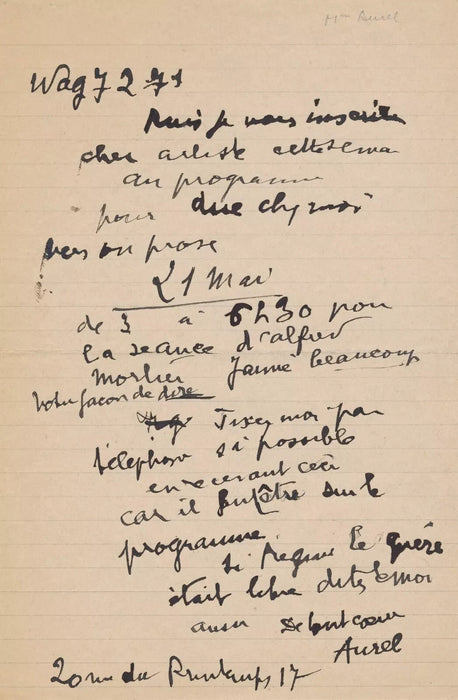 Mme Aurel
Wag 72 71
Puis je vous inscrire
cher artiste cette sema
au programme
pour dire chez moi
vers ou prose
21 Mai
de 3 à 6h30 pour
la séance d'alfred
Mortier J'aime beaucoup
votre façon de dire
Fixez moi par
téléphone si possible
en recevant ceci
car il faut être sur le
programme
Si Régina le quéré
était libre dites le moi
aussi De tout cœur
Aurel
20 rue du Printemps 17